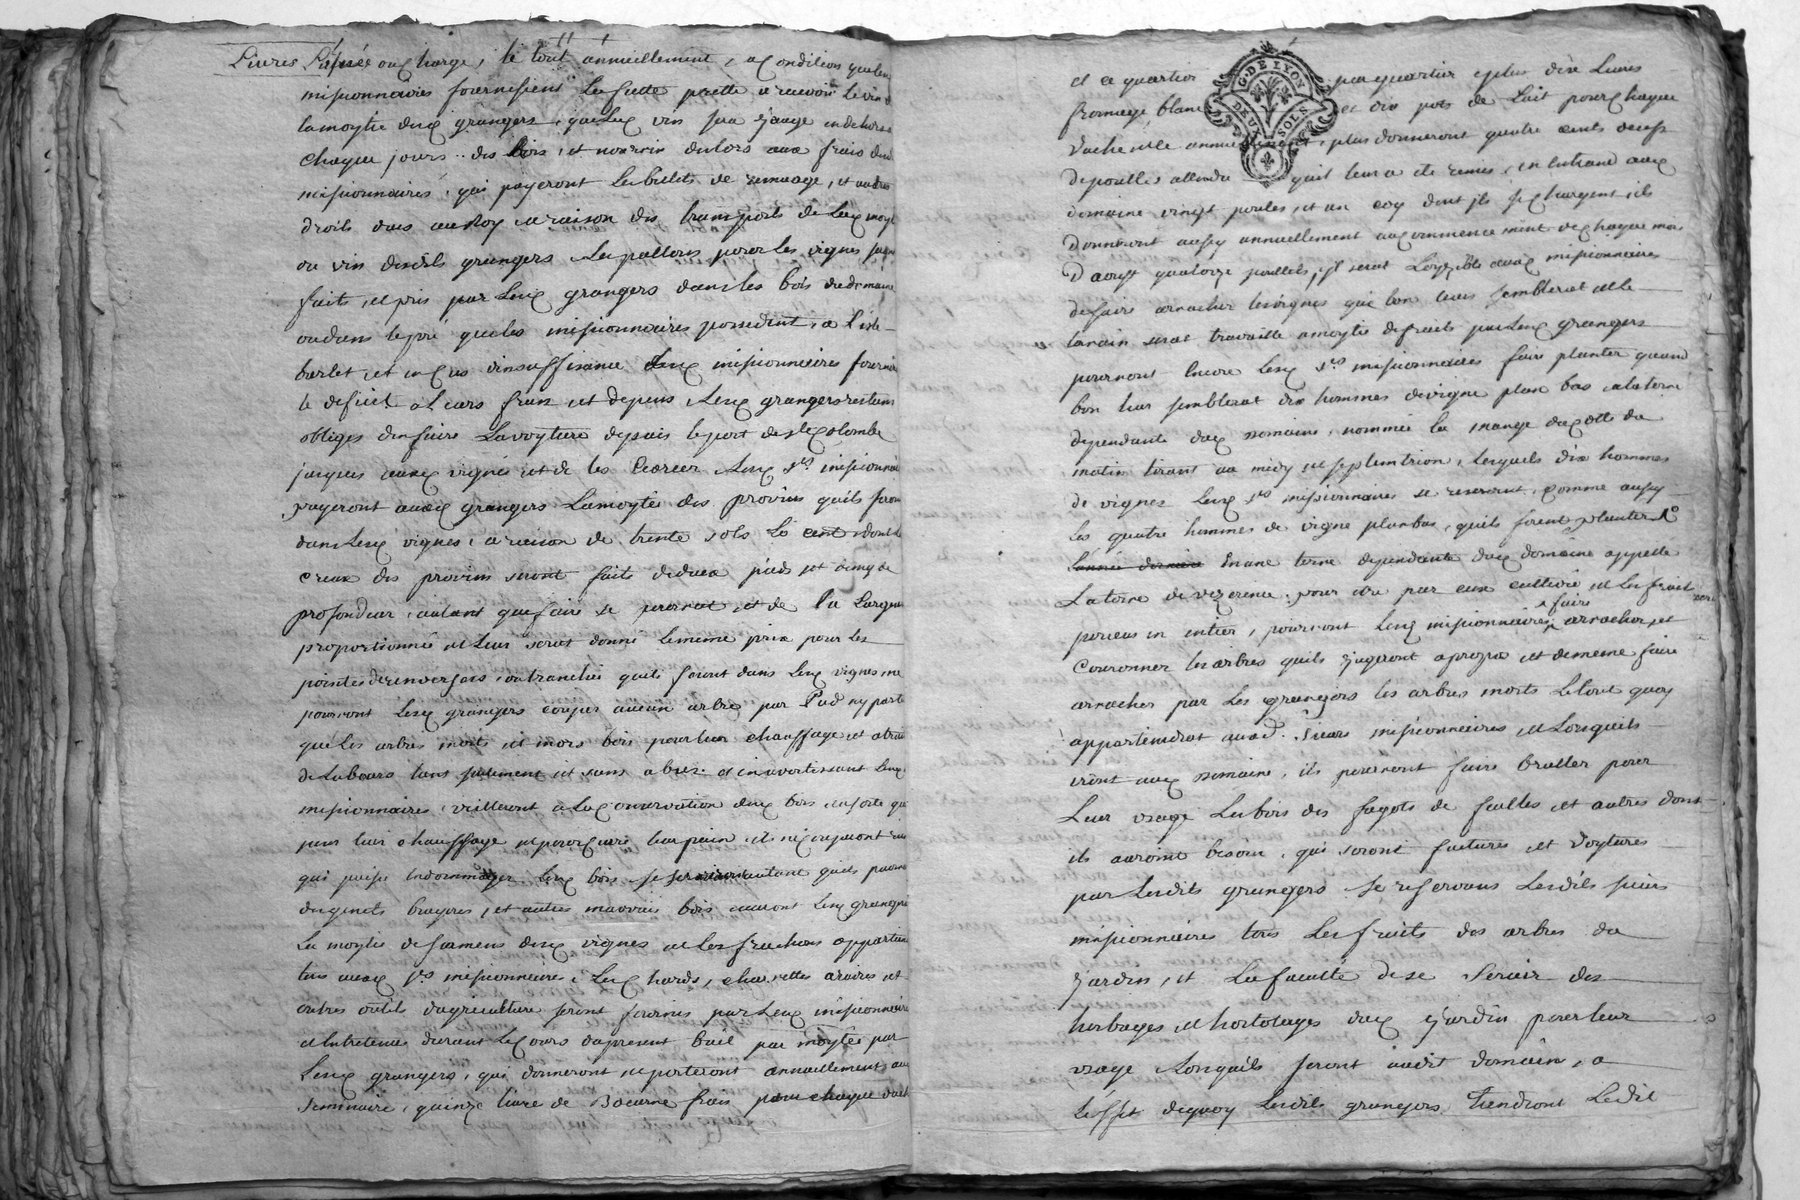 Livres L'année ou charge, le tout annuellement, a condition que les
missionnaires fournissent La futte prette a recevoir le vin
la moytie aux grangers, que le vin sera jaugé en dehors
chaque jours des et nourrir dulors aux frais desd
missionnaires, qui payeront les billets de remuage, et autres
droits dus au Roy a raison des transports de la moyt
ou vin desdits grangers Les pallons pour les vignes seront
fait, et pris par Lesd grangers dans les bois du domaine
ou dans le pré que les missionnaires possedent, a l'isle
barlet, et en cas d'insuffisance Lesd missionnaires fourniront
le deficit a Leurs frais et depens Lesd grangers restans
obliges d'en faire La voyture depuis le port de Ste Colombe
jusques auxd vignes et de les Lesd Srs missionnaires
payeront auxd grangers La moytié des provins qu'ils feront
dans Lesd vignes, a raison de trente sols Le cent dont les
creux des provins seront faits de deux pieds et demy de
profondeur, autant que faire se pourrat et de La Largeur
proportionnée et Leur serat donné Le meme prix pour les
pointes de renversers ou tranchées qu'ils feront dans Lesd vignes, ne
pourront Lesd grangers couper aucun arbre par Pied ny part
que Les arbres morts et mors bois pour leur chauffage et
de Labours tant seulement et sans abus et en avertissant Lesd
missionnaires, veilleront a La conservation desd bois, en sorte que
pour leur chauffage et pour cuire leur pain, ils n'y coupairont rien
qui puisse endommager Lesd bois se serviront autant qu'ils pourront
des genets bruyeres, et autres mauvais bois auront Lesd grangers
La moytie de sarmens desd vignes et Les appartien
tous auxd Srs missionnaires, Les chards, charettes araires et
autres outils d'agriculture seront fournis par Lesd missionnaires
et Entretenus durant Le Cours du present bail par moytié par
Lesd grangers, qui donneront et porteront annuellement au
Seminaire, quinze livre de Beurre frais pour chaque vache
et ce quartier par quartier et plus dix Livres
fromage blanc et dix pots de Lait pour chaque
Vache et le annuellement, plus donneront quatre cents oeufs
de poulles attendu qu'il leur a ete remis, en entrant aud
domaine vingt poules, et un coq dont ils se chargent, ils
donneront aussy annuellement au commencement de chaque mois
D'aoust quatorze poullets, il serat Loysible auxd missionnaires
de faire arracher les vignes que bon leurs semblerat et le
terrain serat travaillé a moytié de fruits par Lesd grangers
pourront Encore Lesd Srs missionnaires faire planter quand
bon leur semblerat dix hommes de vigne plan bas a la terre
dependante dud domaine, nommée la du cotté du
matin tirant au midy et septentrion, Lesquels dix hommes
de vignes Lesd Srs missionnaires se reservent, comme aussy
les quatre hommes de vigne plan bas, qu'ils firent planter
L'année derniere En une terre dependante dud domaine appellé
La terre de, pour etre par eux cultivé et Les fruits
perceus en entier, pourront Lesd missionnaires faire arracher, et
Couronner les arbres qu'ils jugeront apropos et de meme faire
arracher par Les grangers les arbres morts Le tout quoy
appartiendrat auxd. Sieurs missionnaires et Lorsqu'ils
iront aud domaine, ils pourront faire bruller pour
Leur usage Les bois des fagots de feulles et autres dont
ils auront besoin, qui seront faitures et voytures
par Lesdits grangers Se reservans Lesdits sieurs
missionnaires tous Les fruits des arbres du
jardin, et La faculté de se servir des
herbages et hortolages dud jardin pour leur
usage Lorsqu'ils seront audit domaine, a
Leffet dequoy Lesdits grangers Tiendront Ledit
G. DE LYON
DEUX SOLS